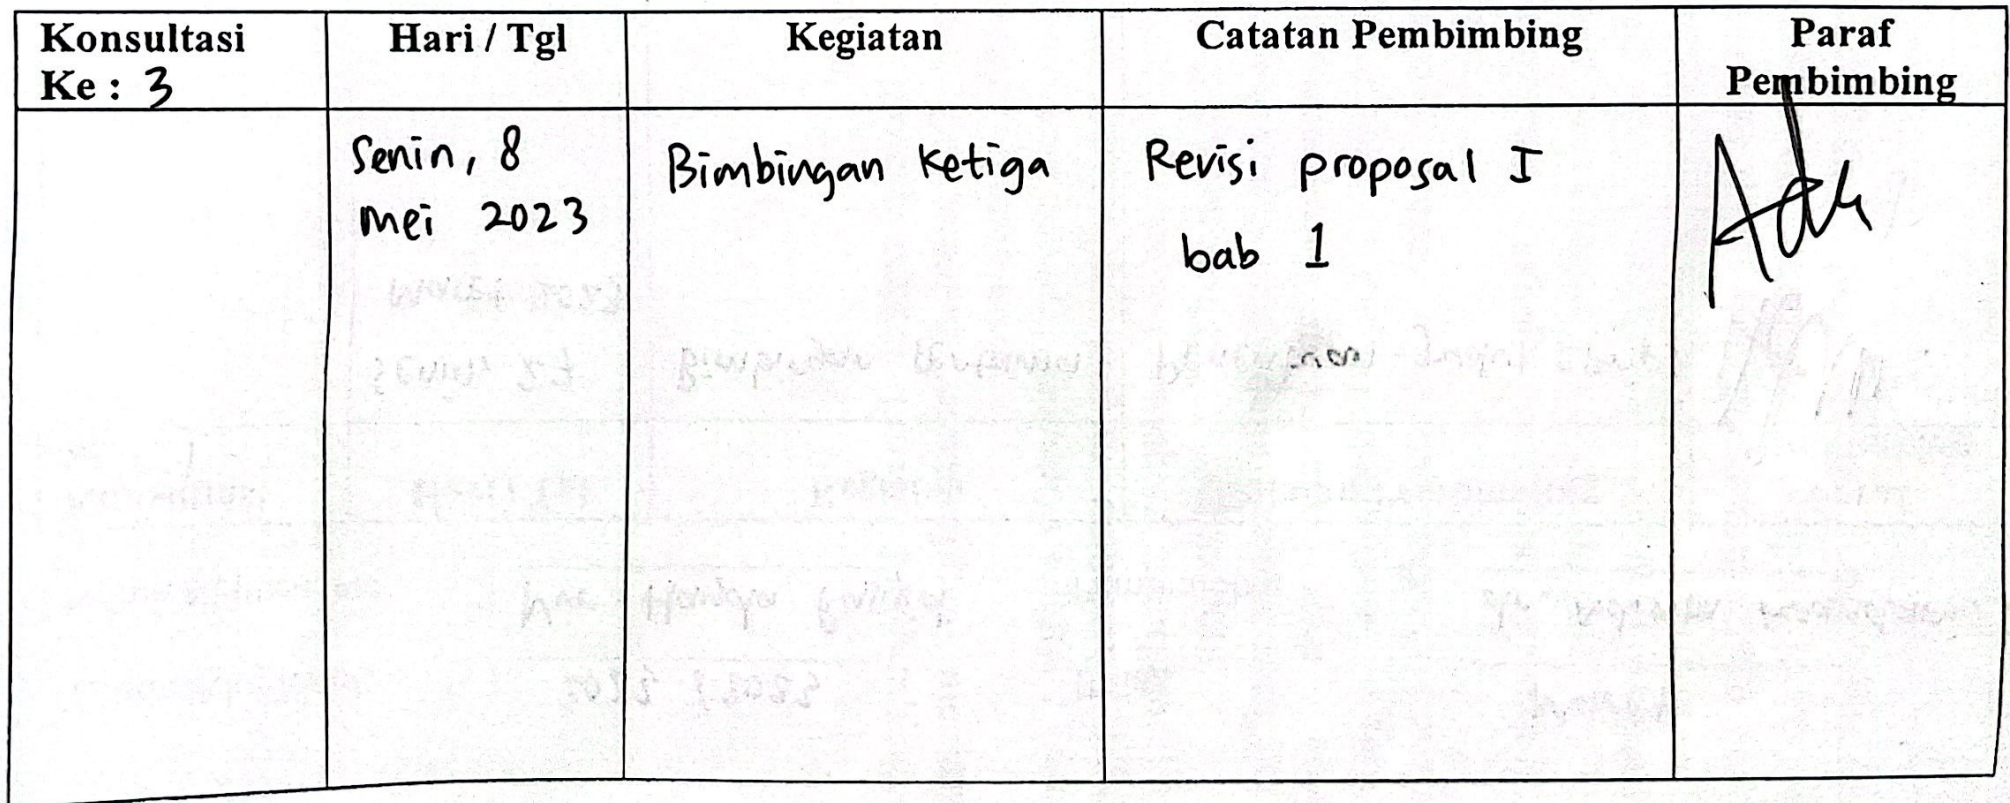 Konsultasi
Ke : 3
Hari / Tgl
Kegiatan
Catatan Pembimbing
Paraf
Pembimbing
Senin, 8
Mei 2023
Bimbingan Ketiga
Revisi proposal I
bab 1